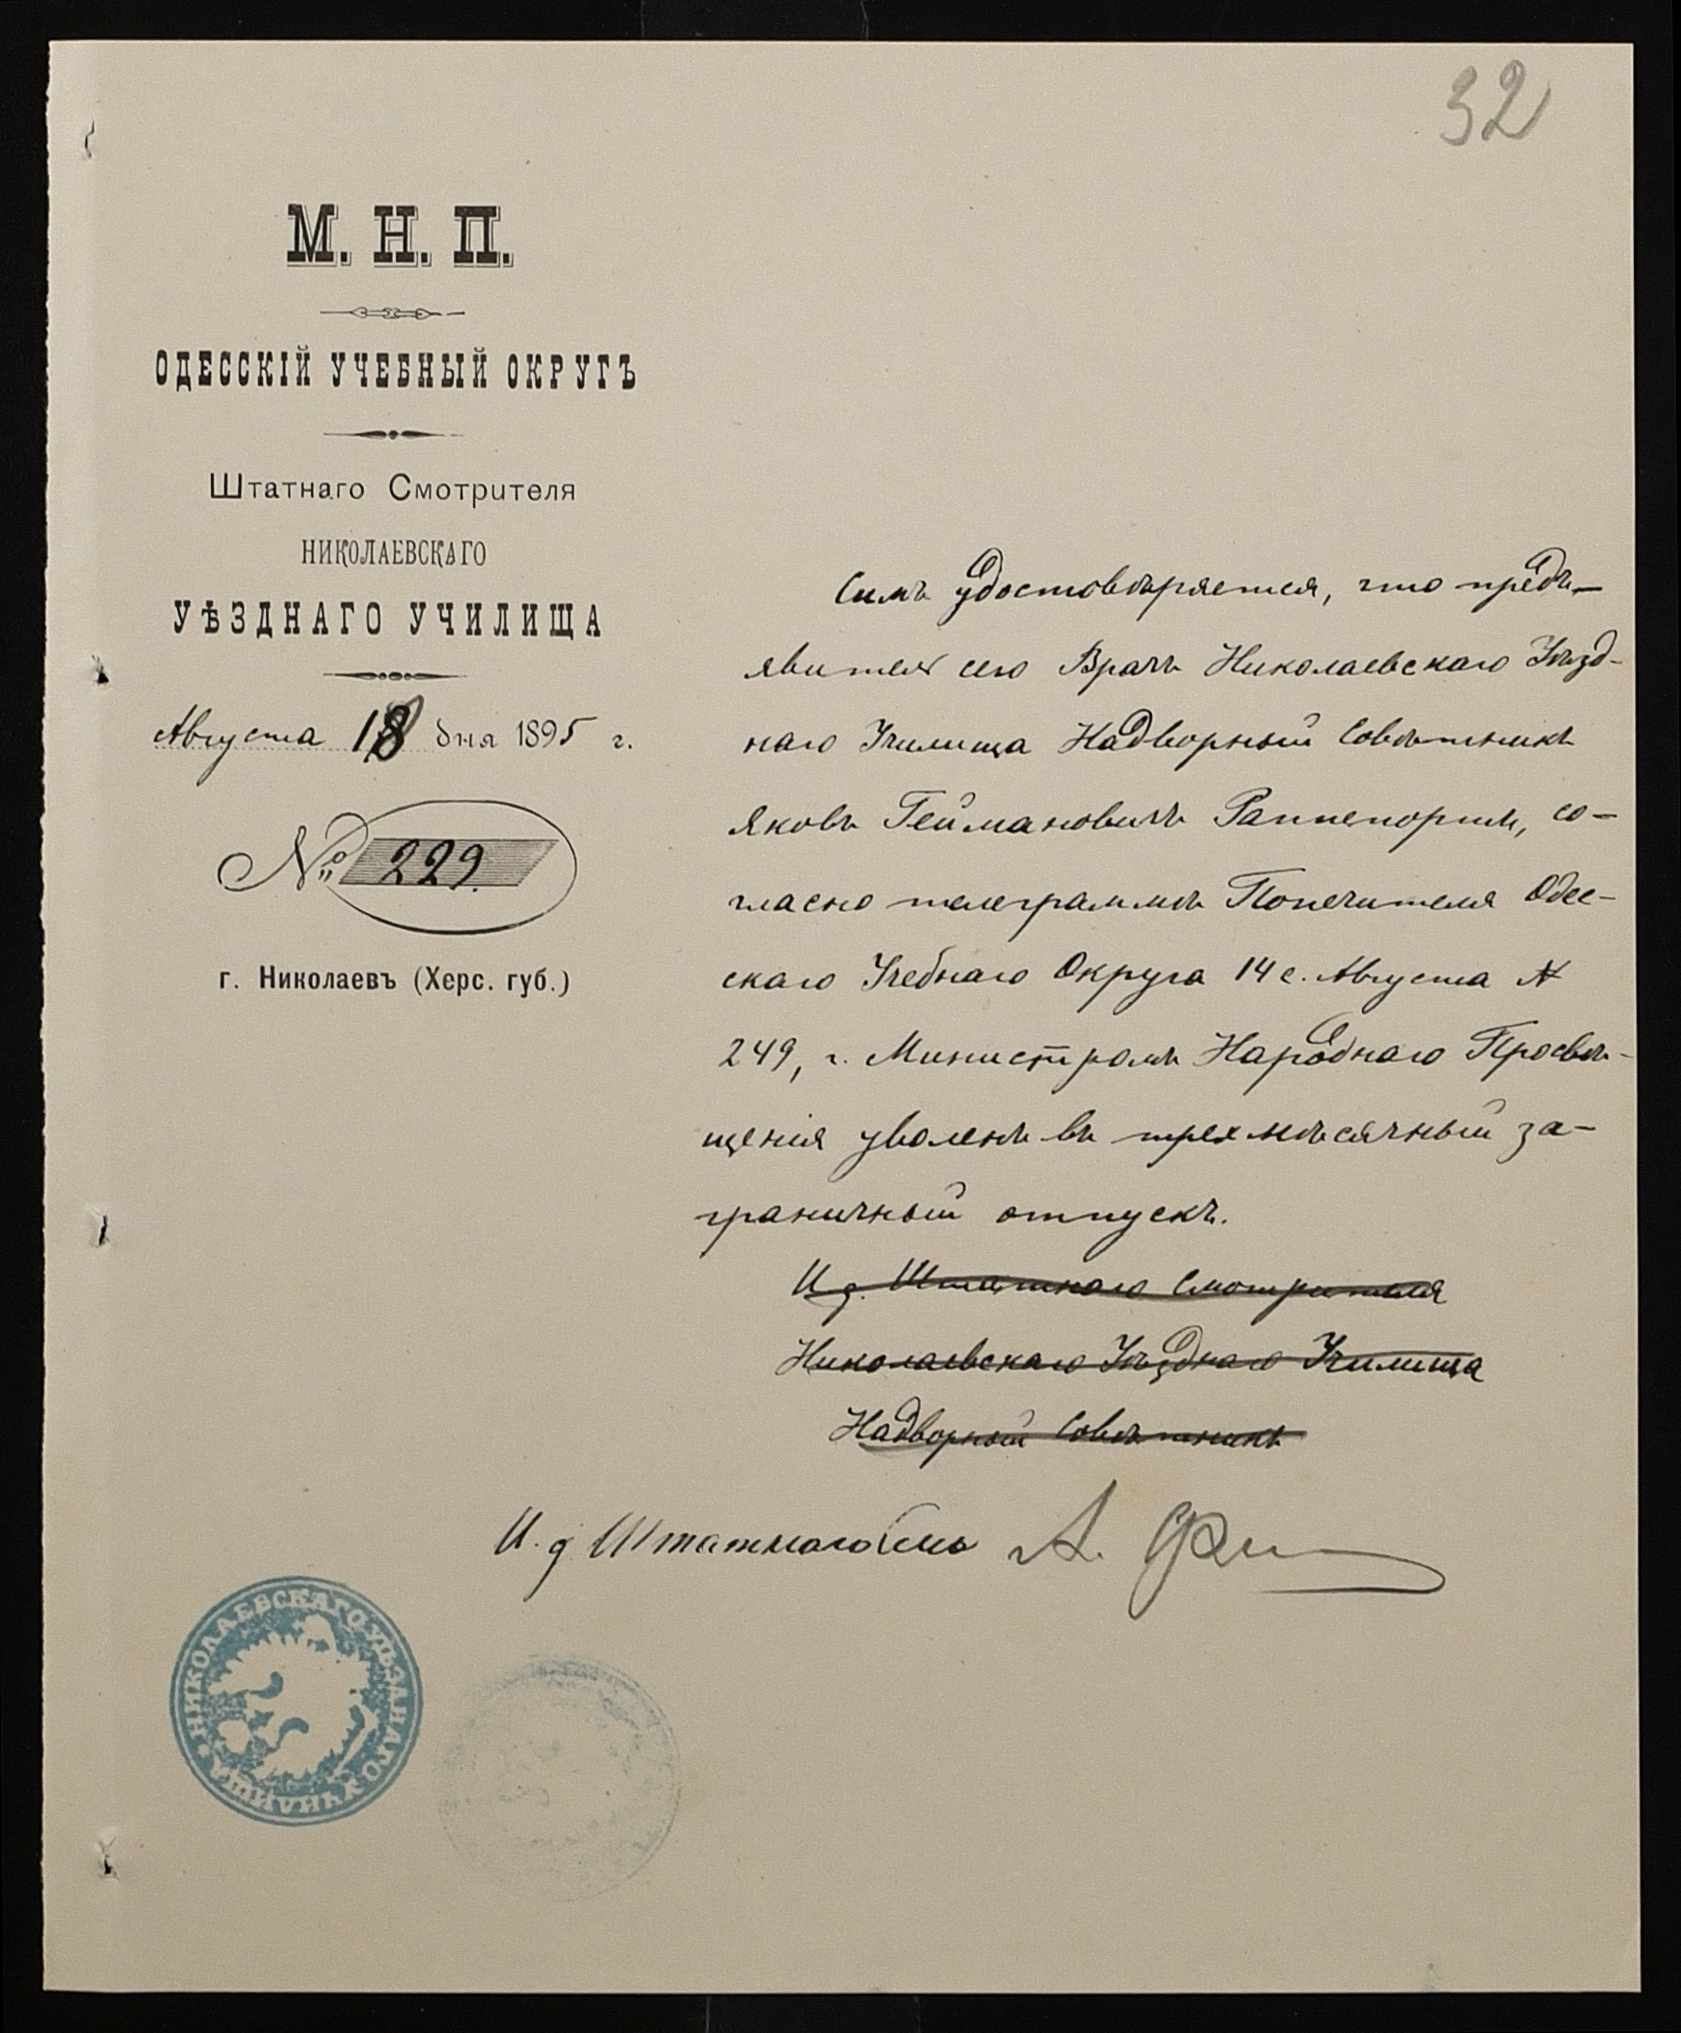 32
М. Н. П.
ОДЕССКІЙ УЧЕБНЫЙ ОКРУГЪ
Штатнаго Смотрителя
НИКОЛАЕВСКАГО
УѢЗДНАГО УЧИЛИЩА
Августа 18 дня 1895 г.
№ 229.
г. Николаевъ (Херс. губ.)
Симъ удостовѣряется, что предъ-
явитель сего Врачъ Николаевскаго Уѣзд-
наго Училища Надворный Совѣтникъ
Яковъ Геймановичъ Раппепортъ, со-
гласно телеграммѣ Попечителя Одес-
скаго Учебнаго Округа 14 с. Августа №
249, г. Министромъ Народнаго Просвѣ-
щенія уволенъ въ трехмѣсячный за-
граничный отпускъ.
И д. Штатнаго Смотрителя
Николаевскаго Уѣзднаго Училища
Надворный Совѣтникъ
И. д Штатнаго А.
НИКОЛАЕВСКАГО УѢЗДНАГО УЧИЛИЩА